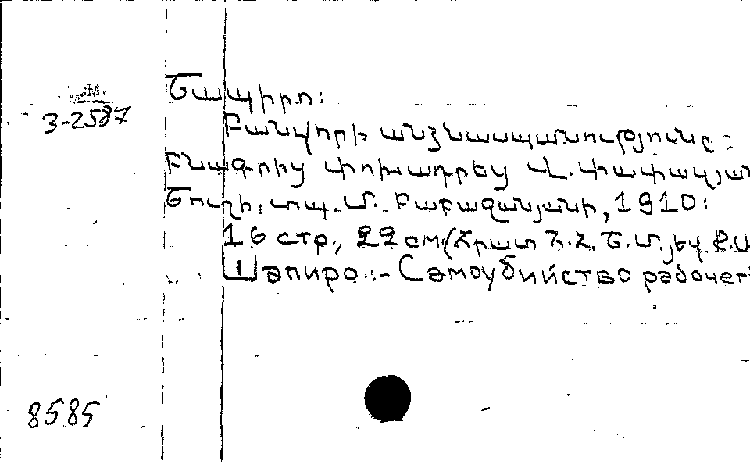 3-2587
Շապիրո:
Բանվորի անձնասպանությունը:
Բնագրից փոխադրեց Վ. Փափազյան
Շուշի, տպ. Մ. Բաբաջանյանի, 1910:
16 стр., 22 см (Հրատ Հ.Հ.
Шапиро.- Самоубийство рабочег
8585